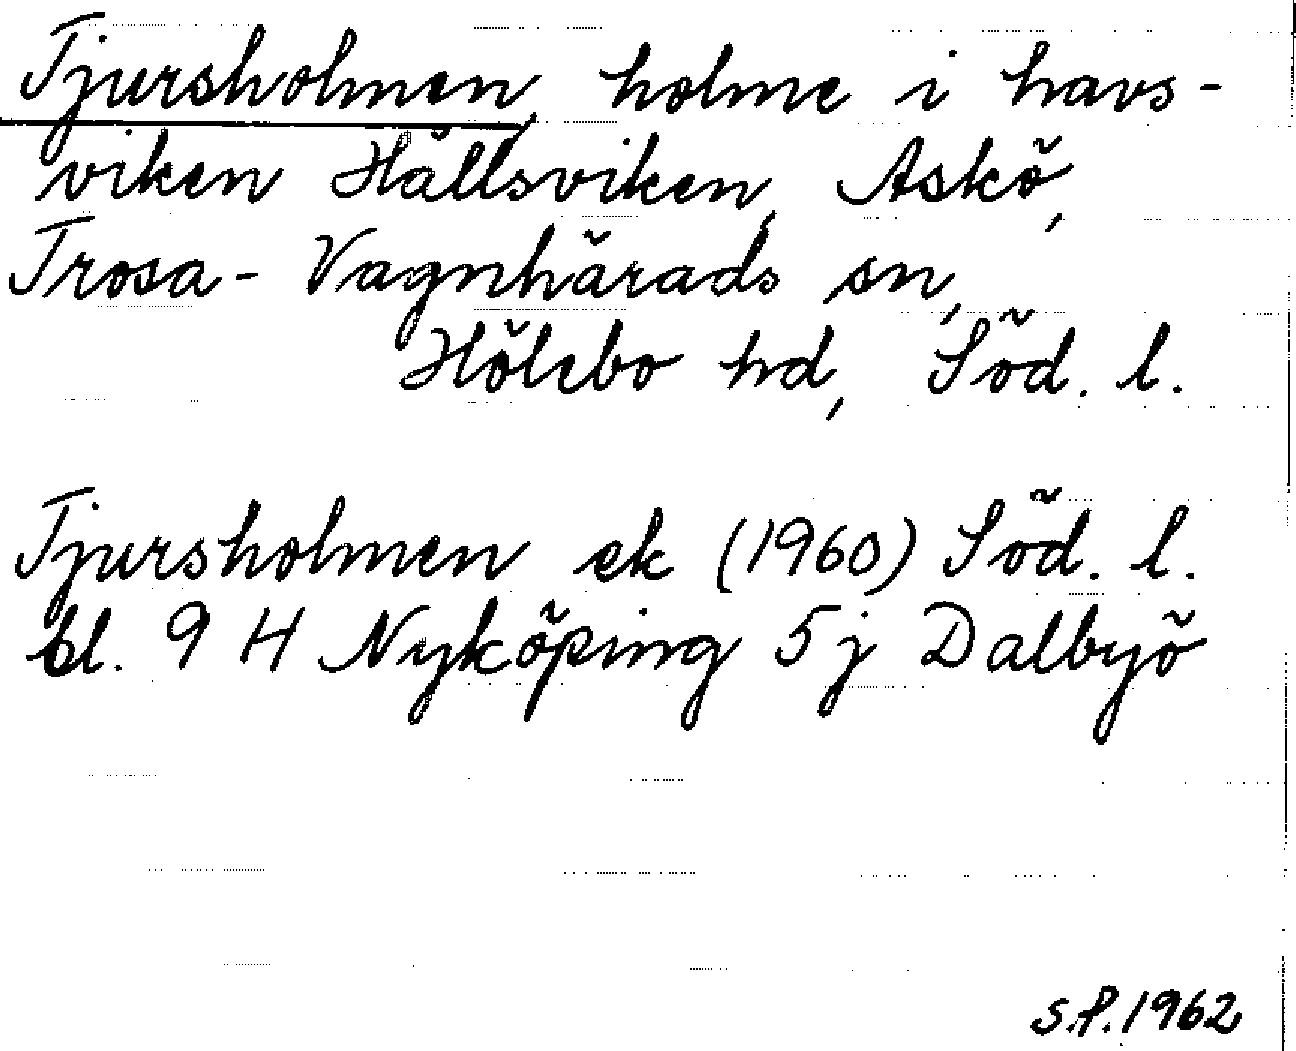 Tjursholmen, holme i havs-
viken Hållsviken, Askö,
Trosa-Vagnhärads sn,
Hölebo hd, Söd. l.
Tjursholmen ek (1960) Söd. l.
bl. 9 H Nyköping 5j Dalbyö
S.P. 1962